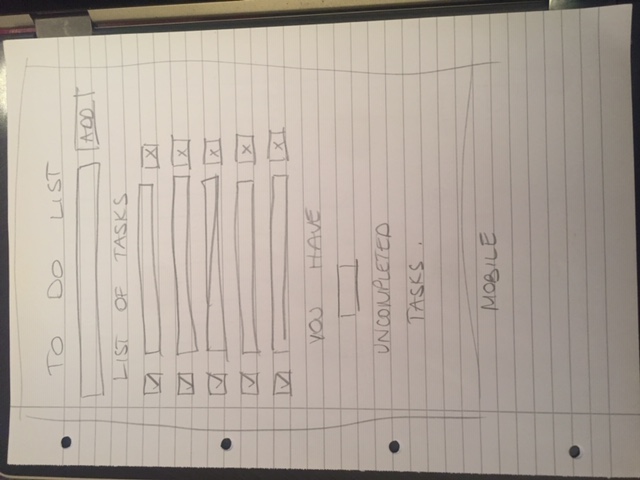 TO DO LIST
ADD
LIST OF TASKS
X
X
X
X
X
YOU HAVE
UNCOMPLETED
TASKS.
MOBILE